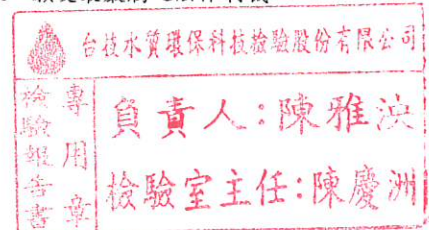 台技水質環保科技檢驗股份有限公司
檢驗報告書專用章
負責人:陳雅泱
檢驗室主任:陳慶洲